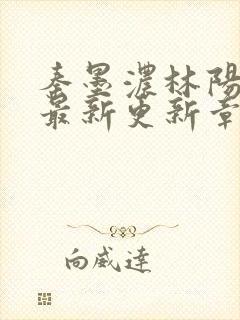 秦墨濃林陽
最新更新章
向威達